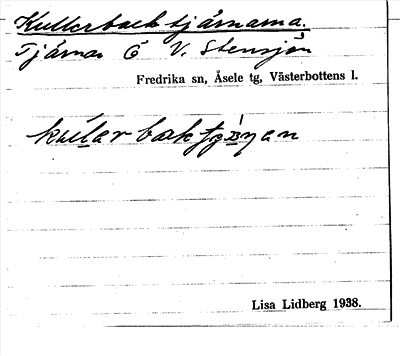 Kullerbacktjärnarna.
Tjärnar Ö V. Stensjön
Fredrika sn, Åsele tg, Västerbottens l.
Lisa Lidberg 1938.